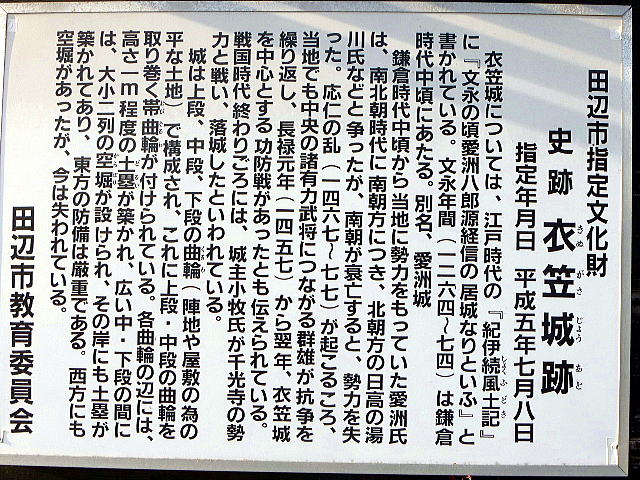 田辺市指定文化財
史跡 衣笠城跡
きぬ がさ じょう あと
指定年月日 平成五年七月八日
衣笠城については、江戸時代の『紀伊続風土記』
しょくふどき
に『文永の頃愛洲八郎源経信の居城なりといふ』と
書かれている。文永年間（一二六四～七四）は鎌倉
時代中頃にあたる。別名、愛洲城
鎌倉時代中頃から当地に勢力をもっていた愛洲氏
は、南北朝時代に南朝方につき、北朝方の日高の湯
川氏などと争ったが、南朝が衰亡すると、勢力を失
った。応仁の乱（一四六七～七七）が起こるころ、
当地でも中央の諸有力武将につながる群雄が抗争を
繰り返し、長禄元年（一四五七）から翌年、衣笠城
を中心とする功防戦があったとも伝えられている。
戦国時代終わりごろには、城主小牧氏が千光寺の勢
力と戦い、落城したといわれている。
城は上段、中段、下段の曲輪（陣地や屋敷の為の
平な土地）で構成され、これに上段・中段の曲輪を
取り巻く帯曲輪が付けられている。各曲輪の辺には、
高さ一m程度の土塁が築かれ、広い中・下段の間に
は、大小二列の空堀が設けられ、その岸にも土塁が
築かれてあり、東方の防備は厳重である。西方にも
空堀があったが、今は失われている。
田辺市教育委員会